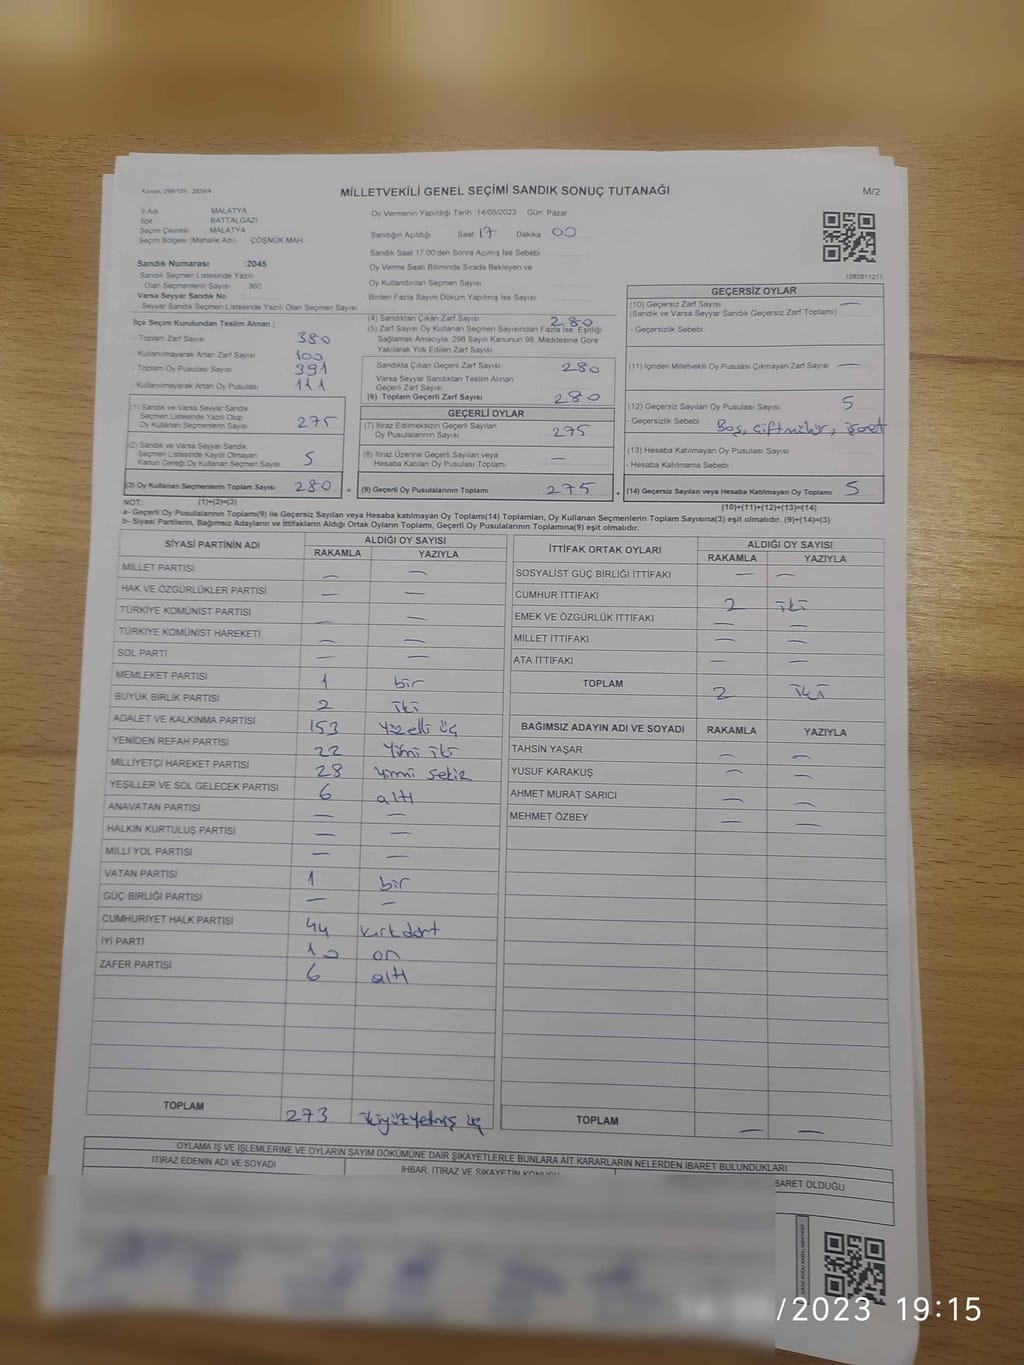 Kanun, 298/105 - 2839/4
MİLLETVEKİLİ GENEL SEÇİMİ SANDIK SONUÇ TUTANAĞI
M/2
İl Adı MALATYA
İlçe BATTALGAZİ
Seçim Çevresi MALATYA
Seçim Bölgesi (Mahalle Adı) ÇÖŞNÜK MAH.
Oy Vermenin Yapıldığı Tarih :14/05/2023 Gün: Pazar
Sandığın Açıldığı Saat 17 Dakika 00
Sandık Saat 17:00'den Sonra Açılmış İse Sebebi
Oy Verme Saati Bitiminde Sırada Bekleyen ve
Oy Kullandırılan Seçmen Sayısı
Birden Fazla Sayım Döküm Yapılmış İse Sayısı
1083811211
Sandık Numarası :2045
- Sandık Seçmen Listesinde Yazılı
Olan Seçmenlerin Sayısı : 360
Varsa Seyyar Sandık No
- Seyyar Sandık Seçmen Listesinde Yazılı Olan Seçmen Sayısı
İlçe Seçim Kurulundan Teslim Alınan ;
- Toplam Zarf Sayısı 380
- Kullanılmayarak Artan Zarf Sayısı 100
- Toplam Oy Pusulası Sayısı 391
- Kullanılmayarak Artan Oy Pusulası 111
(1) Sandık ve Varsa Seyyar Sandık
Seçmen Listesinde Yazılı Olup
Oy Kullanan Seçmenlerin Sayısı 275
(2) Sandık ve Varsa Seyyar Sandık
Seçmen Listesinde Kayıtlı Olmayan
Kanun Gereği Oy Kullanan Seçmen Sayısı 5
(3) Oy Kullanan Seçmenlerin Toplam Sayısı 280 =
(4) Sandıktan Çıkan Zarf Sayısı 280
(5) Zarf Sayısı Oy Kullanan Seçmen Sayısından Fazla İse, Eşitliği
Sağlamak Amacıyla, 298 Sayılı Kanunun 98. Maddesine Göre
Yakılarak Yok Edilen Zarf Sayısı
Sandıkta Çıkan Geçerli Zarf Sayısı 280
Varsa Seyyar Sandıktan Teslim Alınan
Geçerli Zarf Sayısı
(6) Toplam Geçerli Zarf Sayısı 280
GEÇERLİ OYLAR
(7) İtiraz Edilmeksizin Geçerli Sayılan
Oy Pusulalarının Sayısı 275
(8) İtiraz Üzerine Geçerli Sayılan veya
Hesaba Katılan Oy Pusulası Toplamı —
(9) Geçerli Oy Pusulalarının Toplamı 275 +
GEÇERSİZ OYLAR
(10) Geçersiz Zarf Sayısı —
(Sandık ve Varsa Seyyar Sandık Geçersiz Zarf Toplamı)
- Geçersizlik Sebebi
(11) İçinden Milletvekili Oy Pusulası Çıkmayan Zarf Sayısı —
(12) Geçersiz Sayılan Oy Pusulası Sayısı 5
- Geçersizlik Sebebi Boş, çiftmühür, işaret
(13) Hesaba Katılmayan Oy Pusulası Sayısı
- Hesaba Katılmama Sebebi
(14) Geçersiz Sayılan veya Hesaba Katılmayan Oy Toplamı 5
NOT: (1)+(2)=(3)
(10)+(11)+(12)+(13)=(14)
a- Geçerli Oy Pusulalarının Toplamı(9) ile Geçersiz Sayılan veya Hesaba katılmayan Oy Toplamı(14) Toplamları, Oy Kullanan Seçmenlerin Toplam Sayısına(3) eşit olmalıdır. (9)+(14)=(3)
b- Siyasi Partilerin, Bağımsız Adayların ve İttifakların Aldığı Ortak Oyların Toplamı, Geçerli Oy Pusulalarının Toplamına(9) eşit olmalıdır.
SİYASİ PARTİNİN ADI ALDIĞI OY SAYISI
RAKAMLA YAZIYLA
MİLLET PARTİSİ — —
HAK VE ÖZGÜRLÜKLER PARTİSİ — —
TÜRKİYE KOMÜNİST PARTİSİ — —
TÜRKİYE KOMÜNİST HAREKETİ — —
SOL PARTİ — —
MEMLEKET PARTİSİ 1 bir
BÜYÜK BİRLİK PARTİSİ 2 iki
ADALET VE KALKINMA PARTİSİ 153 yüzelli üç
YENİDEN REFAH PARTİSİ 22 Yirmi iki
MİLLİYETÇİ HAREKET PARTİSİ 28 Yirmi sekiz
YEŞİLLER VE SOL GELECEK PARTİSİ 6 altı
ANAVATAN PARTİSİ — —
HALKIN KURTULUŞ PARTİSİ — —
MİLLİ YOL PARTİSİ — —
VATAN PARTİSİ 1 bir
GÜÇ BİRLİĞİ PARTİSİ — —
CUMHURİYET HALK PARTİSİ 44 kırkdört
İYİ PARTİ 10 on
ZAFER PARTİSİ 6 altı
TOPLAM 273 ikiyüzyetmiş üç
İTTİFAK ORTAK OYLARI ALDIĞI OY SAYISI
RAKAMLA YAZIYLA
SOSYALİST GÜÇ BİRLİĞİ İTTİFAKI — —
CUMHUR İTTİFAKI 2 iki
EMEK VE ÖZGÜRLÜK İTTİFAKI — —
MİLLET İTTİFAKI — —
ATA İTTİFAKI — —
TOPLAM 2 iki
BAĞIMSIZ ADAYIN ADI VE SOYADI RAKAMLA YAZIYLA
TAHSİN YAŞAR — —
YUSUF KARAKUŞ — —
AHMET MURAT SARICI — —
MEHMET ÖZBEY — —
TOPLAM — —
OYLAMA İŞ VE İŞLEMLERİNE VE OYLARIN SAYIM DÖKÜMÜNE DAİR ŞİKAYETLERLE BUNLARA AİT KARARLARIN NELERDEN İBARET BULUNDUKLARI
İTİRAZ EDENİN ADI VE SOYADI
İHBAR, İTİRAZ VE ŞİKAYETİN KONUSU
BARET OLDUĞU
/2023 19:15